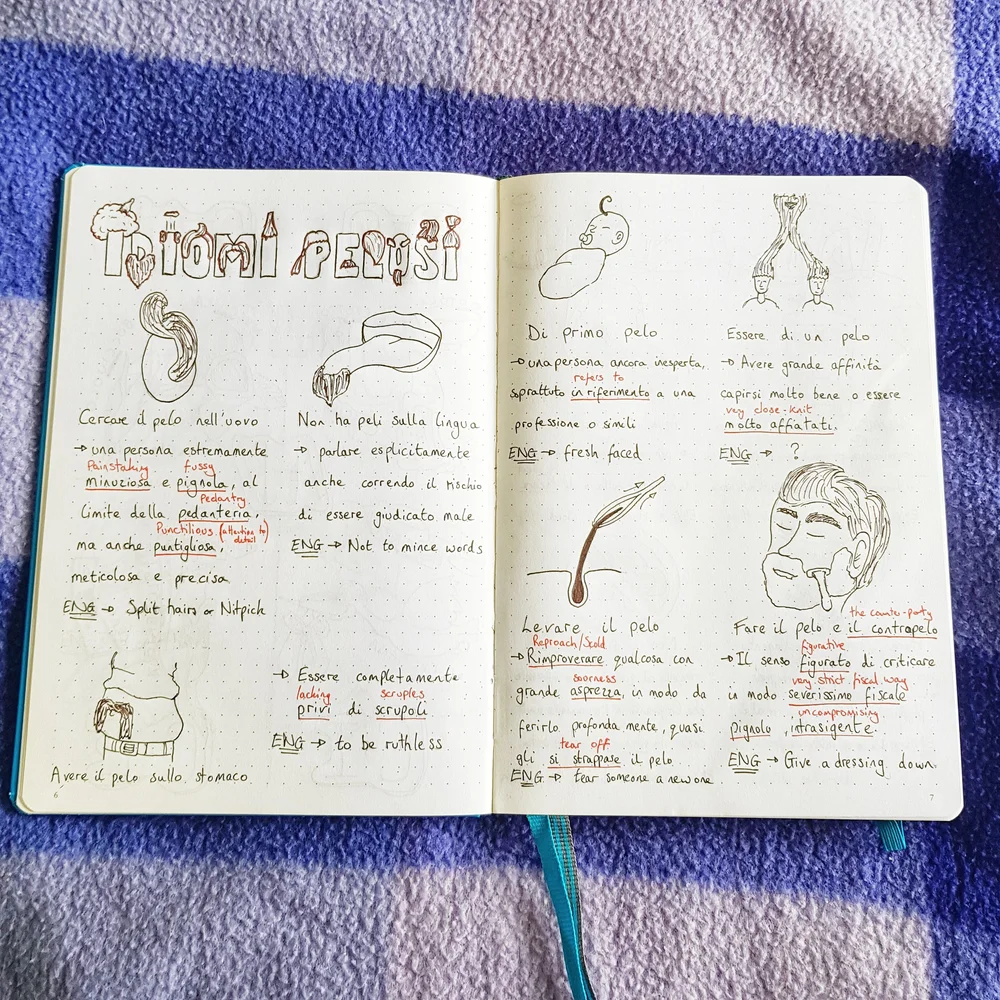 IDIOMI PELOSI
Cercare il pelo nell'uovo
→ una persona estremamente
Painstaking fussy
minuziosa e pignola, al
Pedantry
limite della pedanteria,
Punctilious (attention to detail)
ma anche puntigliosa,
meticolosa e precisa
ENG → Split hairs or Nitpick
Non ha peli sulla lingua
→ parlare esplicitamente
anche correndo il rischio
di essere giudicato male
ENG → Not to mince words
Avere il pelo sullo stomaco
→ Essere completamente
lacking scruples
privi di scrupoli
ENG → to be ruthless
6
Di primo pelo
→ una persona ancora inesperta,
refers to
soprattuto in riferimento a una
professione o simili
ENG → fresh faced
Essere di un pelo
→ Avere grande affinità
capirsi molto bene o essere
very close-knit
molto affiatati.
ENG → ?
Levare il pelo
Reproach/Scold
→ Rimproverare qualcosa con
soorness
grande asprezza, in modo da
ferirlo profonda mente, quasi
tear off
gli si strappase il pelo
ENG → tear someone a new one
Fare il pelo e il contrapelo
the counter-party
figurative
→ Il senso figurato di criticare
very strict fiscal way
in modo severissimo fiscale
uncompromising
pignolo, intrasigente.
ENG → Give a dressing down.
7